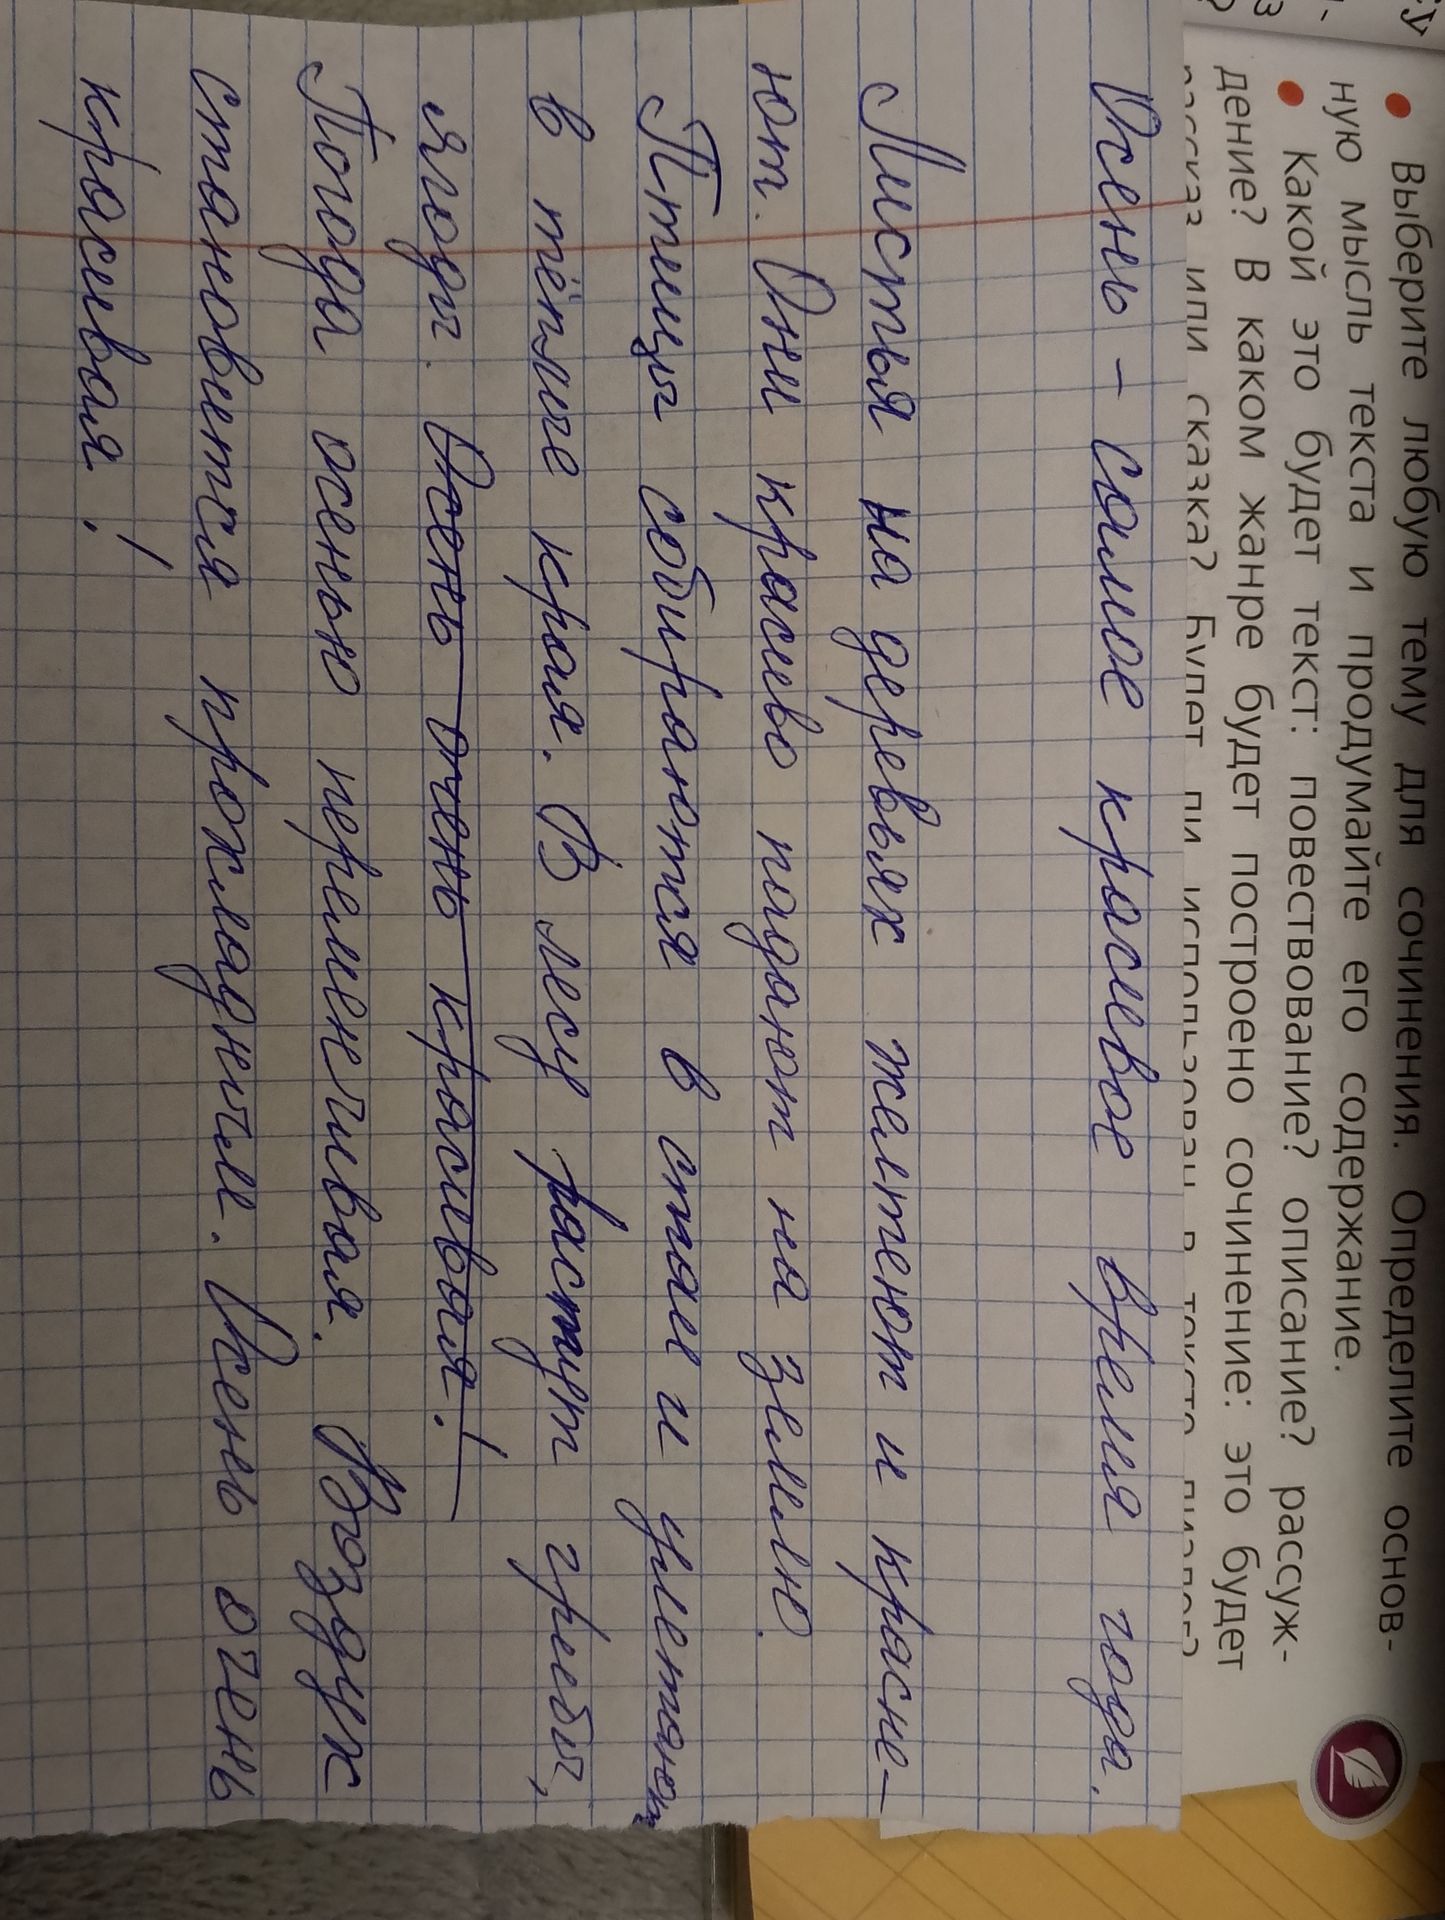 • Выберите любую тему для сочинения. Определите основ-
ную мысль текста и продумайте его содержание.
• Какой это будет текст: повествование? описание? рассуж-
дение? В каком жанре будет построено сочинение: это будет
рассказ или сказка? Будет ли использован в тексте диалог?
Осень – самое красивое время года.
Листья на деревьях желтеют и красне-
ют. Они красиво падают на землю.
Птицы собираются в стаи и улетают
в тёплые края. В лесу растут грибы,
ягоды. Осень очень красивая!
Погода осенью переменчивая. Воздух
становится прохладным. Осень очень
красивая!